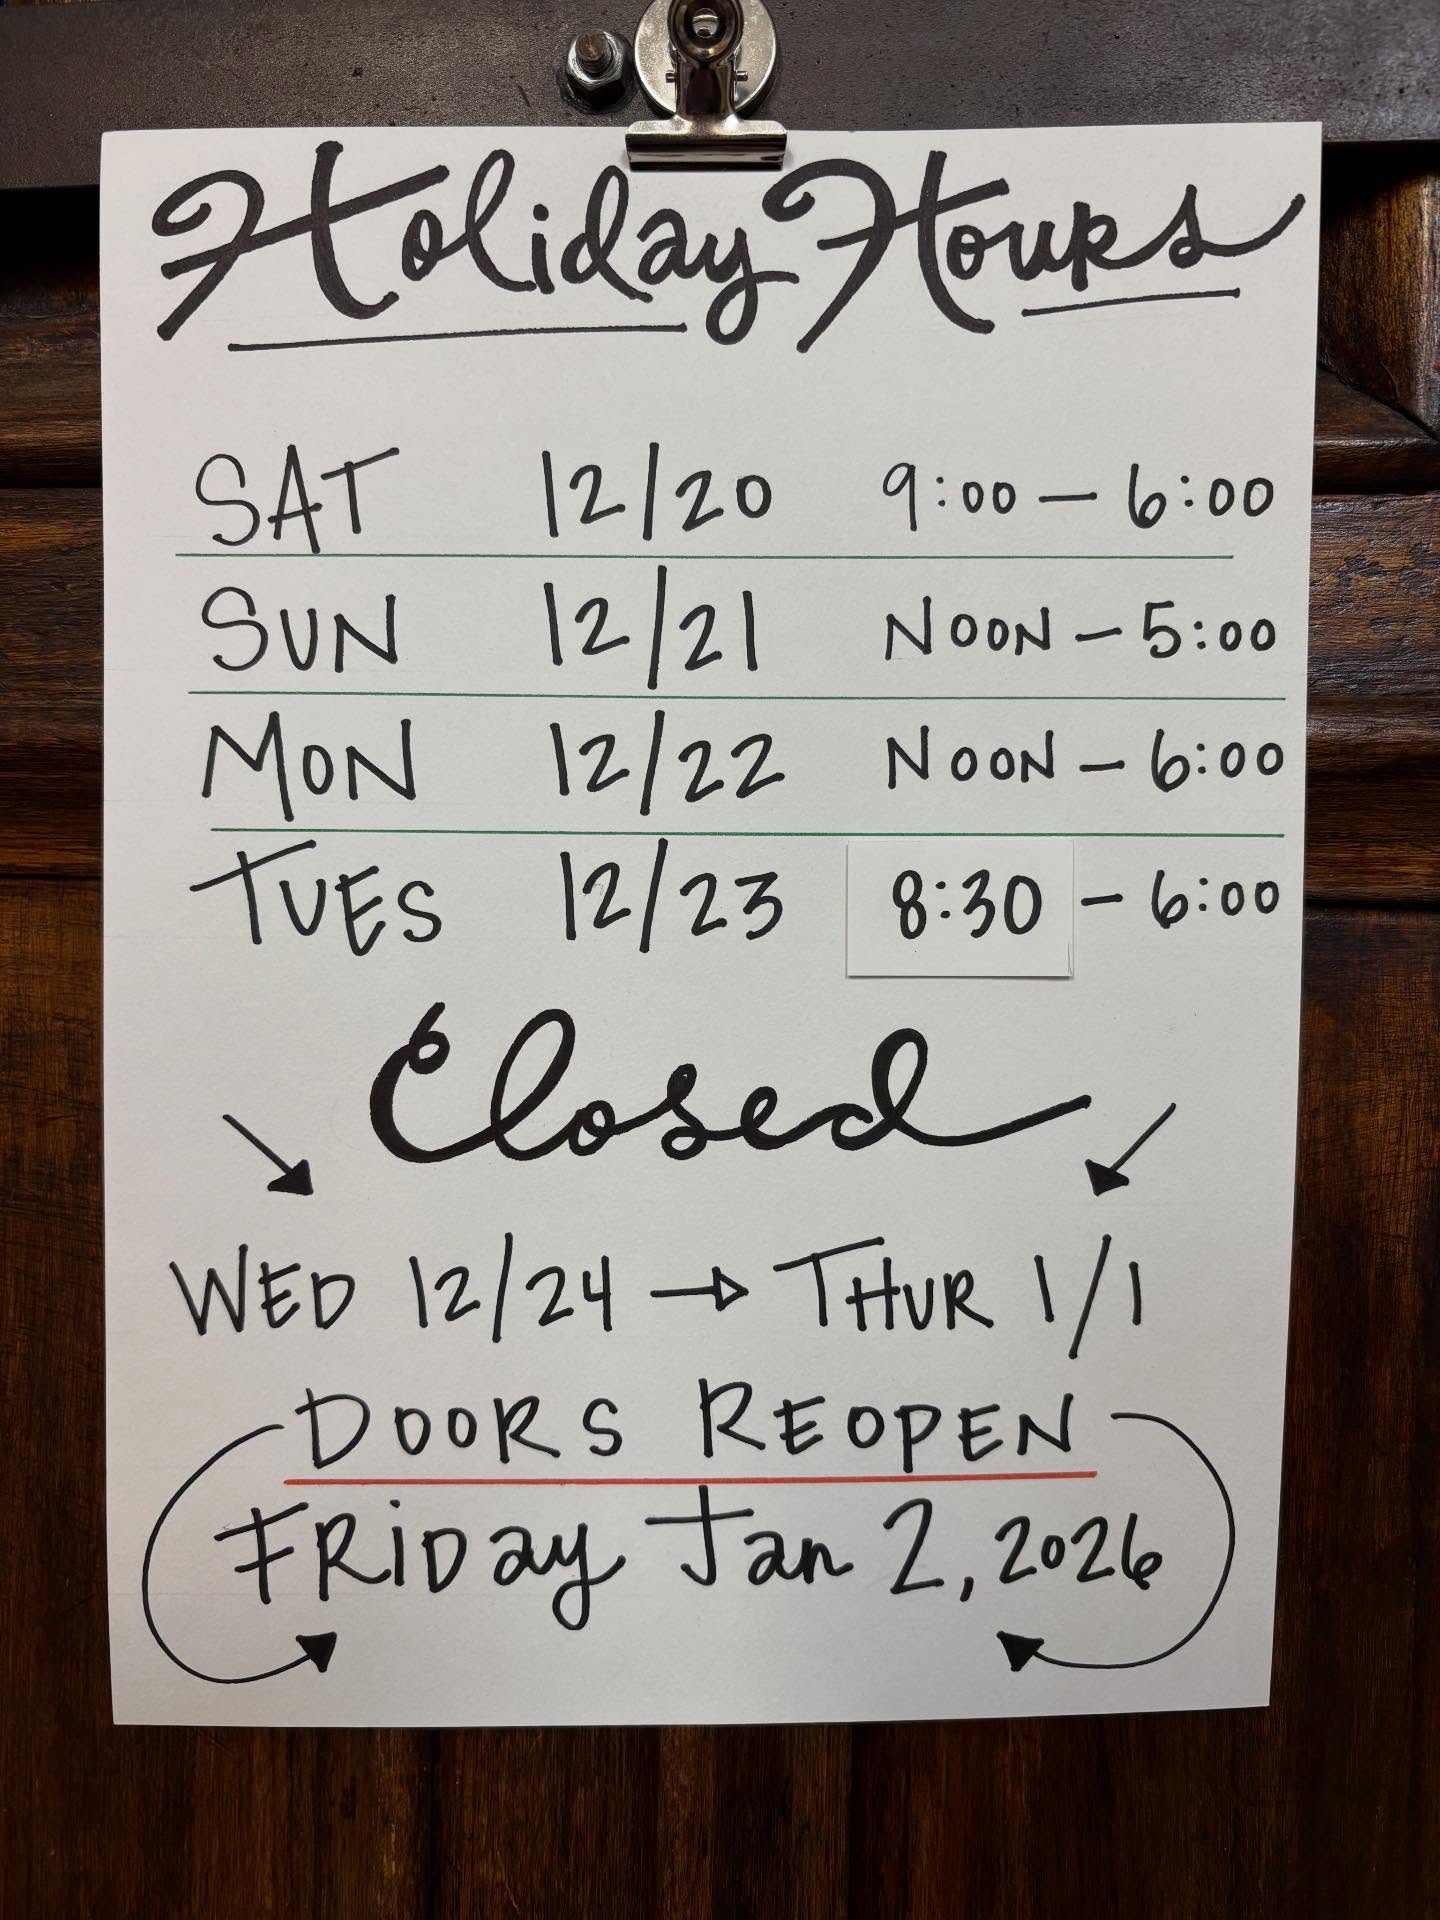 Holiday Hours
SAT 12/20 9:00 — 6:00
SUN 12/21 NOON — 5:00
MON 12/22 NOON — 6:00
TUES 12/23 8:30 — 6:00
Closed
WED 12/24 → THUR 1/1
DOORS REOPEN
FRIDAY Jan 2, 2026